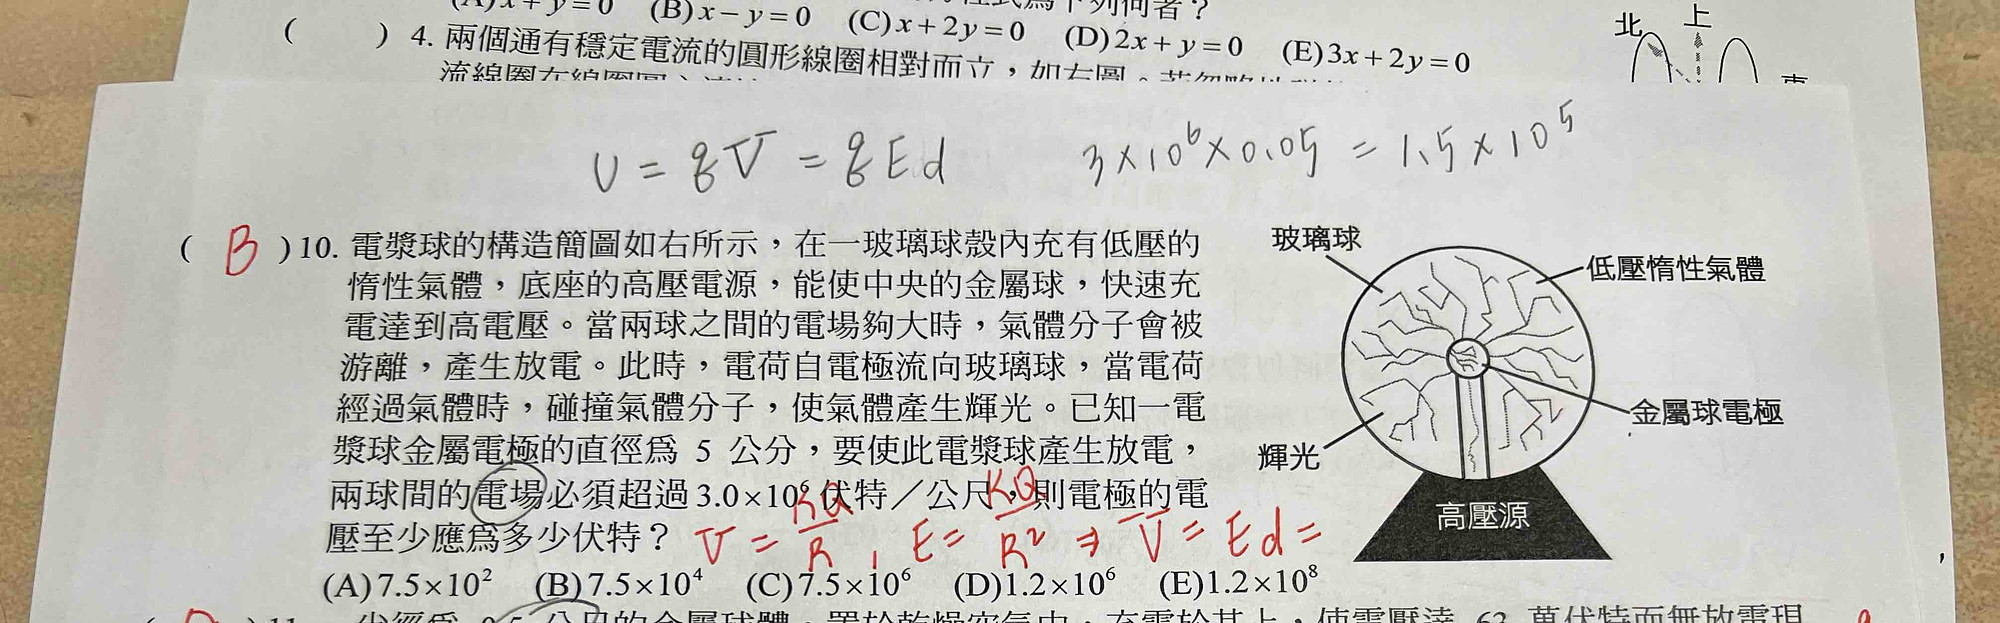 (A)x+y=0 (B)x−y=0 (C)x+2y=0 (D)2x+y=0 (E)3x+2y=0
( )4. 兩個通有穩定電流的圓形線圈相對而立，如右圖。若忽略地
北 上
U = qV = qEd 3×10⁶×0.05 = 1.5×10⁵
( B )10. 電漿球的構造簡圖如右所示，在一玻璃球殼內充有低壓的
惰性氣體，底座的高壓電源，能使中央的金屬球，快速充
電達到高電壓。當兩球之間的電場夠大時，氣體分子會被
游離，產生放電。此時，電荷自電極流向玻璃球，當電荷
經過氣體時，碰撞氣體分子，使氣體產生輝光。已知一電
漿球金屬電極的直徑為 5 公分，要使此電漿球產生放電，
兩球間的電場必須超過3.0×10⁶伏特／公尺，則電極的電
壓至少應為多少伏特？
V = KQ/R , E = KQ/R² ⇒ V = Ed =
(A)7.5×10² (B)7.5×10⁴ (C)7.5×10⁶ (D)1.2×10⁶ (E)1.2×10⁸
玻璃球
低壓惰性氣體
金屬球電極
輝光
高壓源
半徑為 0.5 公尺的金屬球體，置於乾燥空氣中，充電於其上，使電壓達 63 萬伏特而無放電現